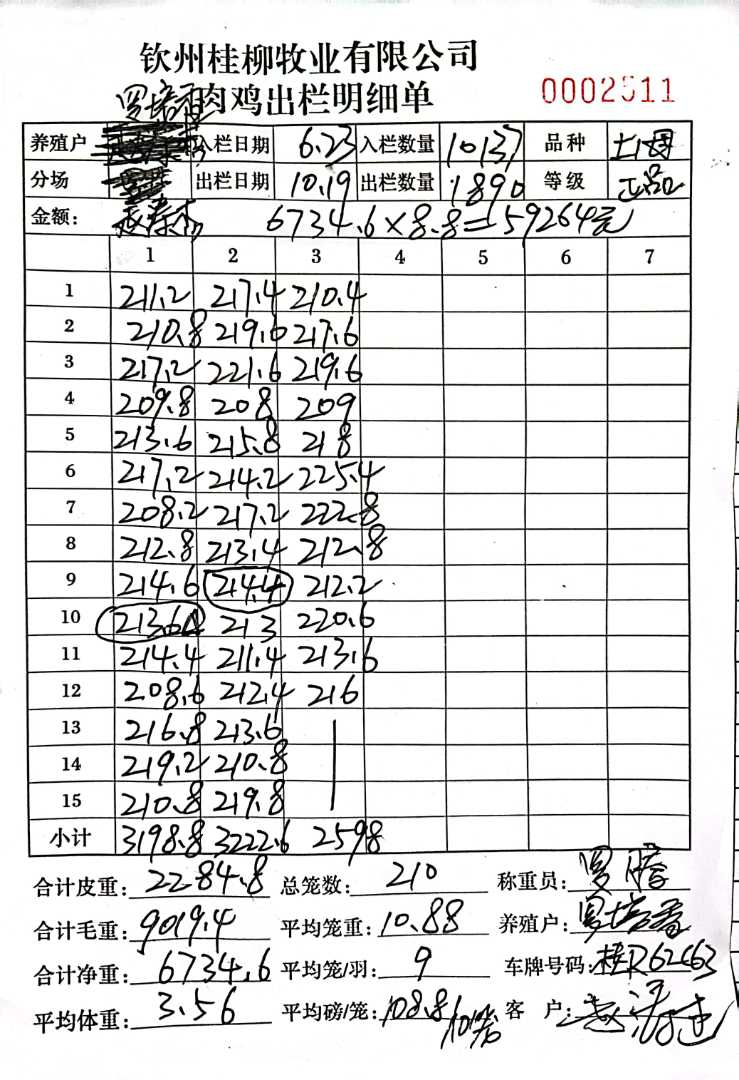 钦州桂柳牧业有限公司
罗培香 肉鸡出栏明细单 0002511
养殖户 入栏日期 6.23 入栏数量 10137 品种 土2母
分场 出栏日期 10.19 出栏数量 1890 等级 正品
金额: 6734.6×8.8=59264元
1 2 3 4 5 6 7
1 211.2 217.4 210.4
2 210.8 219.6 217.6
3 217.2 221.6 219.6
4 209.8 208 209
5 213.6 215.8 218
6 217.2 214.2 225.4
7 208.2 217.2 222.8
8 212.8 213.4 212.8
9 214.6 214.4 212.2
10 213.6 213 220.6
11 214.4 211.4 213.6
12 208.6 212.4 216
13 216.8 213.6
14 219.2 210.8
15 210.8 219.8
小计 3198.8 3222.6 2598
合计皮重: 2284.8 总笼数: 210 称重员: 罗
合计毛重: 9019.4 平均笼重: 10.88 养殖户: 罗培香
合计净重: 6734.6 平均笼/羽: 9 车牌号码: 桂R62663
平均体重: 3.56 平均磅/笼: 108.8 客户: